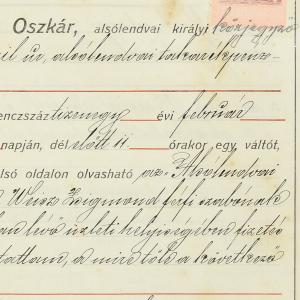 Oszkár, alsólendvai királyi közjegyző
úr, alsólendvai takarékpénz-
enczszáz tizenegy évi február
napján, dél előtt 11 órakor egy, váltót,
lsó oldalon olvasható az Alsólendvai
Weisz Zsigmond férfi szabónak
lévő üzleti helyiségében fizető
tattam, a mire től a következő